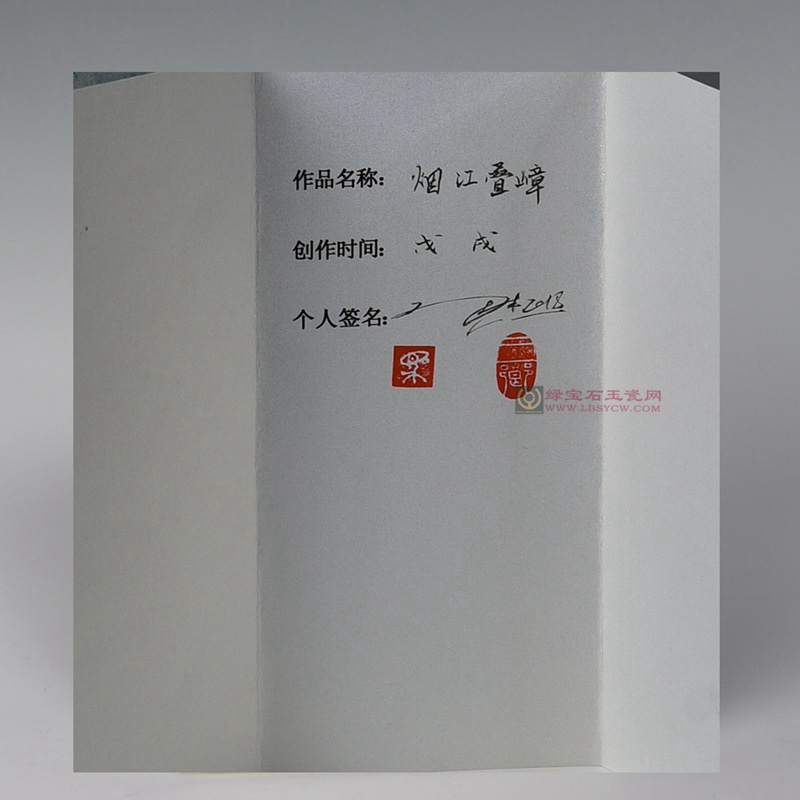 作品名称：烟江叠嶂
创作时间：戊戌
个人签名：2018
绿宝石玉瓷网
WWW.LBSYCW.COM